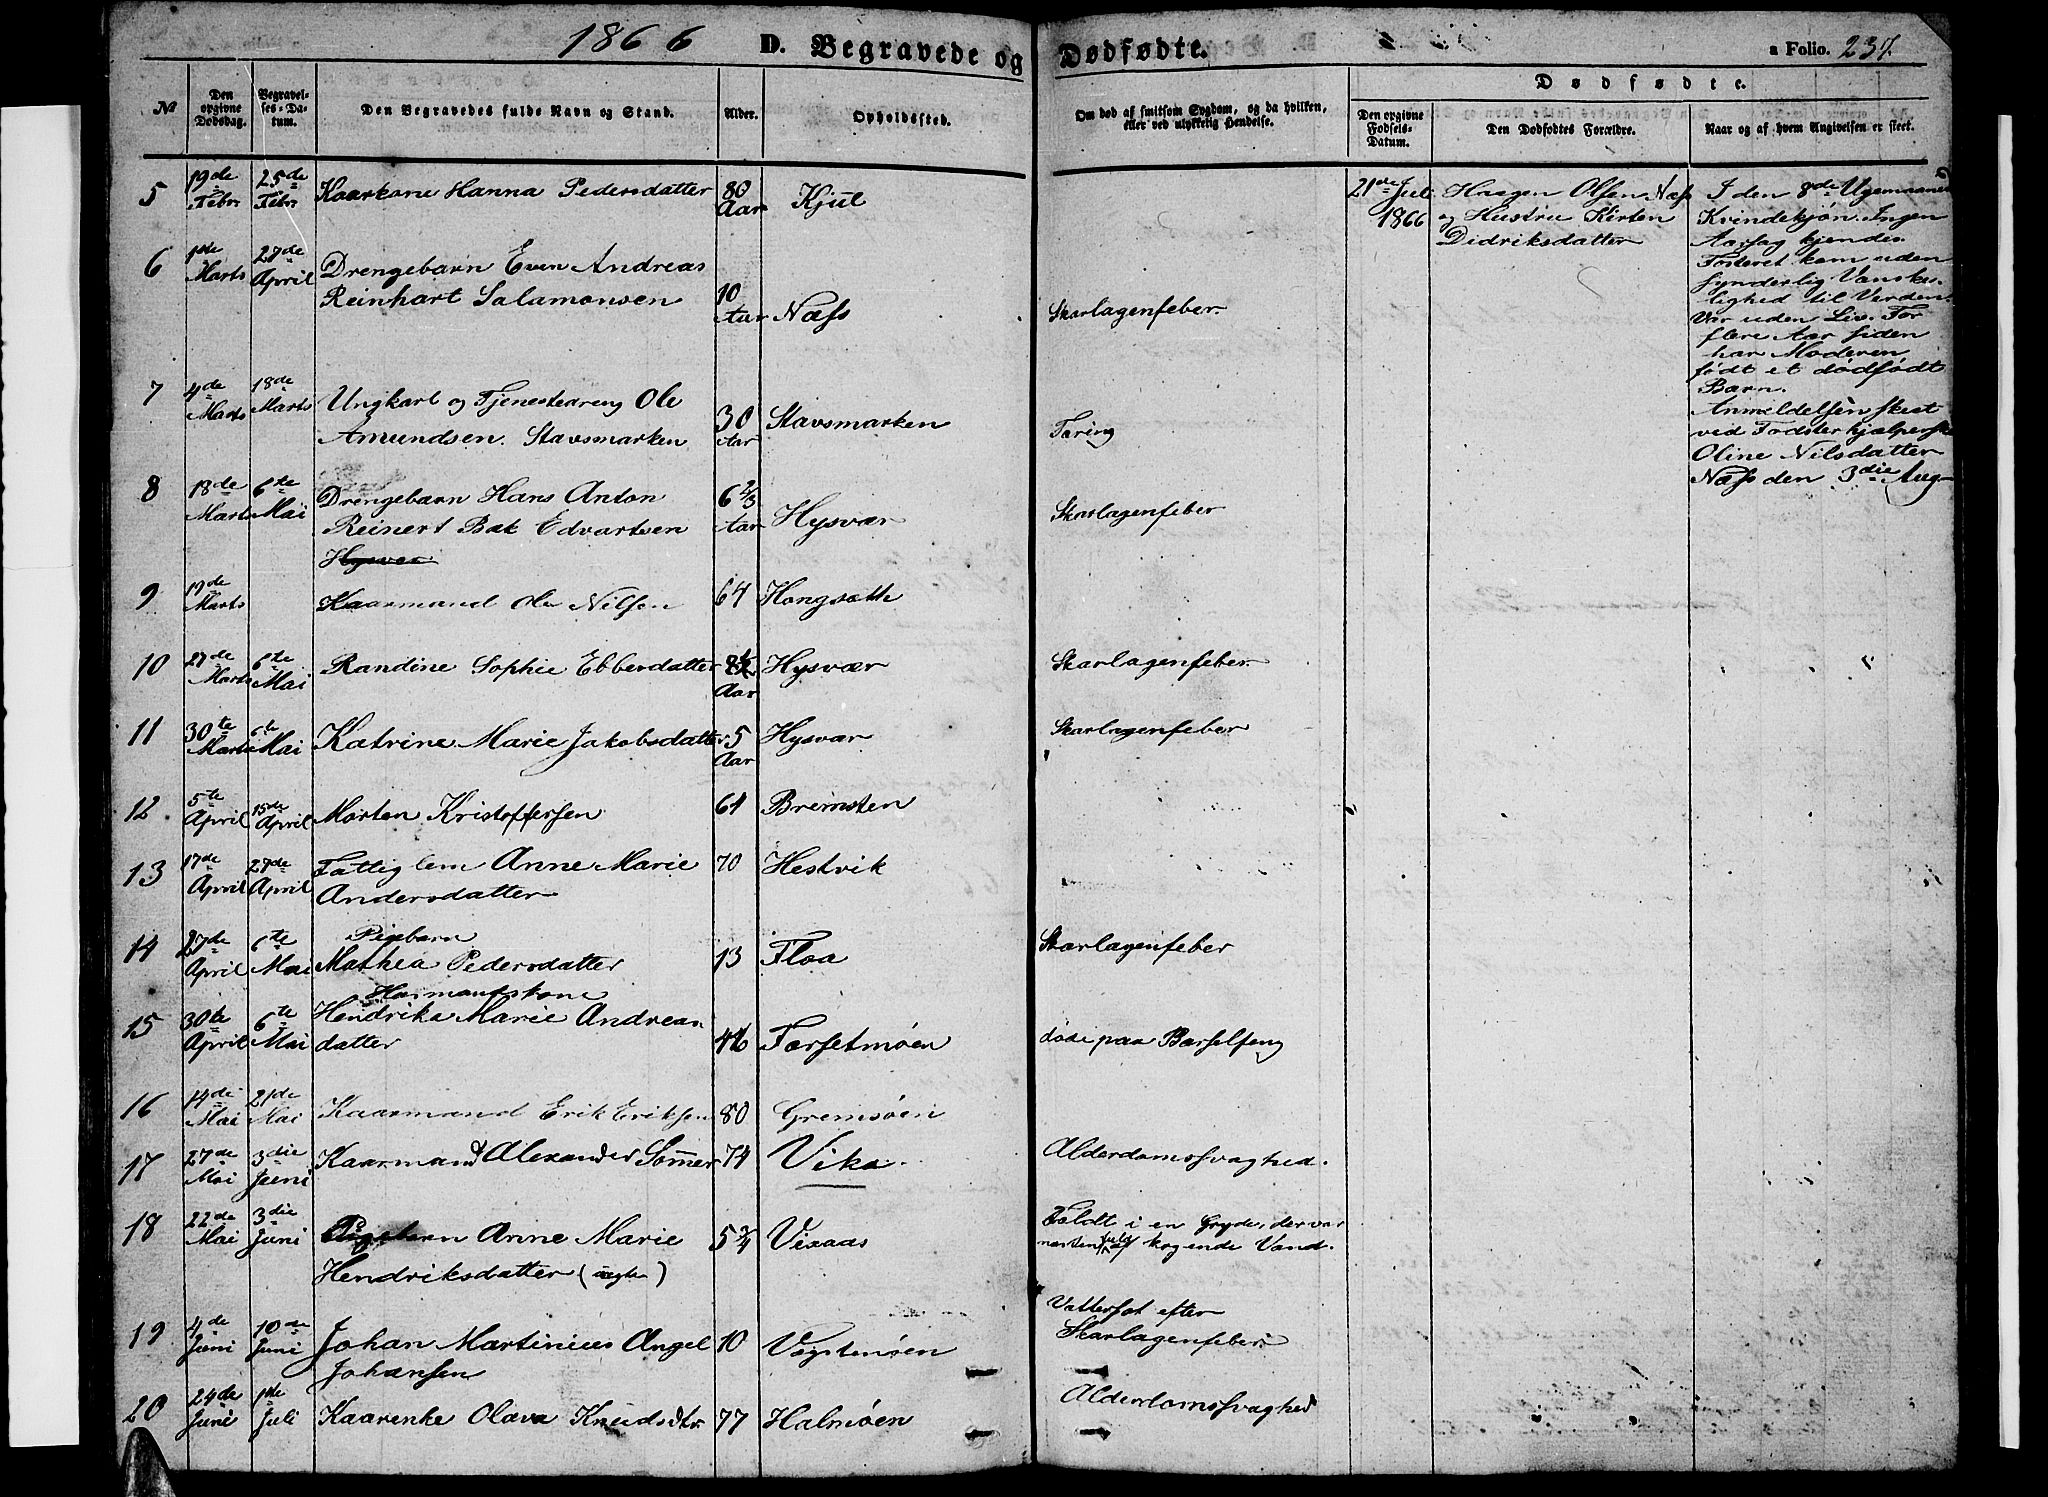 1866 D. Begravede og Dødfødte. a Folio. 237.
Dødfødte.
№
Den opgivne Dødsdag.
Begravelses-Datum.
Den Begravedes fulde Navn og Stand.
Alder.
Opholdssted.
Om død af smitsom Sygdom, og da hvilken, eller ved ulykkelig Hendelse.
Den opgivne Fødsels-Datum.
Den Dødfødtes Forældre.
Naar og af hvem Angivelsen er skeet.
5 19de Febr 25de Febr Kaarkone Hanna Pedersdatter 80 Aar Kjul
6 1ste Marts 27de April Drengebarn Even Andreas
Reinhart Salamonsen 10 Aar Næss Skarlagenfeber.
7 4de Marts 18de Marts Ungkarl og Tjenestedreng Ole
Amundsen. Stavsmarken 30 Aar Stavsmarken Tæring
8 18de Marts 6te Mai Drengebarn Hans Anton
Reinert Bak Edvartsen 6 2/3 Aar Hysvær Skarlagenfeber
Hysvær
9 19de Marts Kaarmand Ole Nilsen 64 Hongsæth
10 27de Marts 6te Mai Randine Sophie Ebbesdatter 8½ Aar Hysvær Skarlagenfeber.
11 30te Marts 6te Mai Katrine Marie Jakobsdatter 5 Aar Hysvær Skarlagenfeber
12 5te April 15de April Morten Kristoffersen 64 Bremsten
13 17de April 27de April Fattiglem Anne Marie 70 Hestvik
Andersdatter
14 27de April 6te Mai Pigebarn
Mathea Pedersdatter 13 Floa Skarlagenfeber
15 30te April 6te Mai Husmandskone
Hendrika Marie Andreas
datter 46 Færsetmøen døde paa Barselseng
16 14de Mai 21de Mai Kaarmand Erik Eriksen 80 Gremsøen
17 27de Mai 3die Juni Kaarmand Alexander Sømer 74 Vika. Alderdomssvaghed.
18 22de Mai 3die Juni Pigebarn Anne Marie 5 3/4 Vixaas Faldt i en Gryde, der var
Hendriksdatter (uægte) næsten fuld af kogende Vand.
19 4de Juni 10de Juni Johan Martinius Angel 10 Vægstensøen Vattersot efter
Johansen Skarlagenfeber.
20 24de Juni 1ste Juli Kaarenke Olava Knudsdtr. 77 Halmøen Alderdomssvaghed
21de Juli
1866
Haagen Olsen Næss
og Hustru Kirsten
Didriksdatter
I den 8de Ugemnaaned
Kvindekjøn. Ingen
Aarsag kjendes.
Fosteret kom uden
synderlig Vanske-
lighed til Verden.
Var uden Liv. For
flere Aar siden
har Moderen
født et dødfødt
Barn.
Anmeldelsen skeet
ved Fødsterhjælperske
Oline Nilsdatter
Næss den 3die Aug